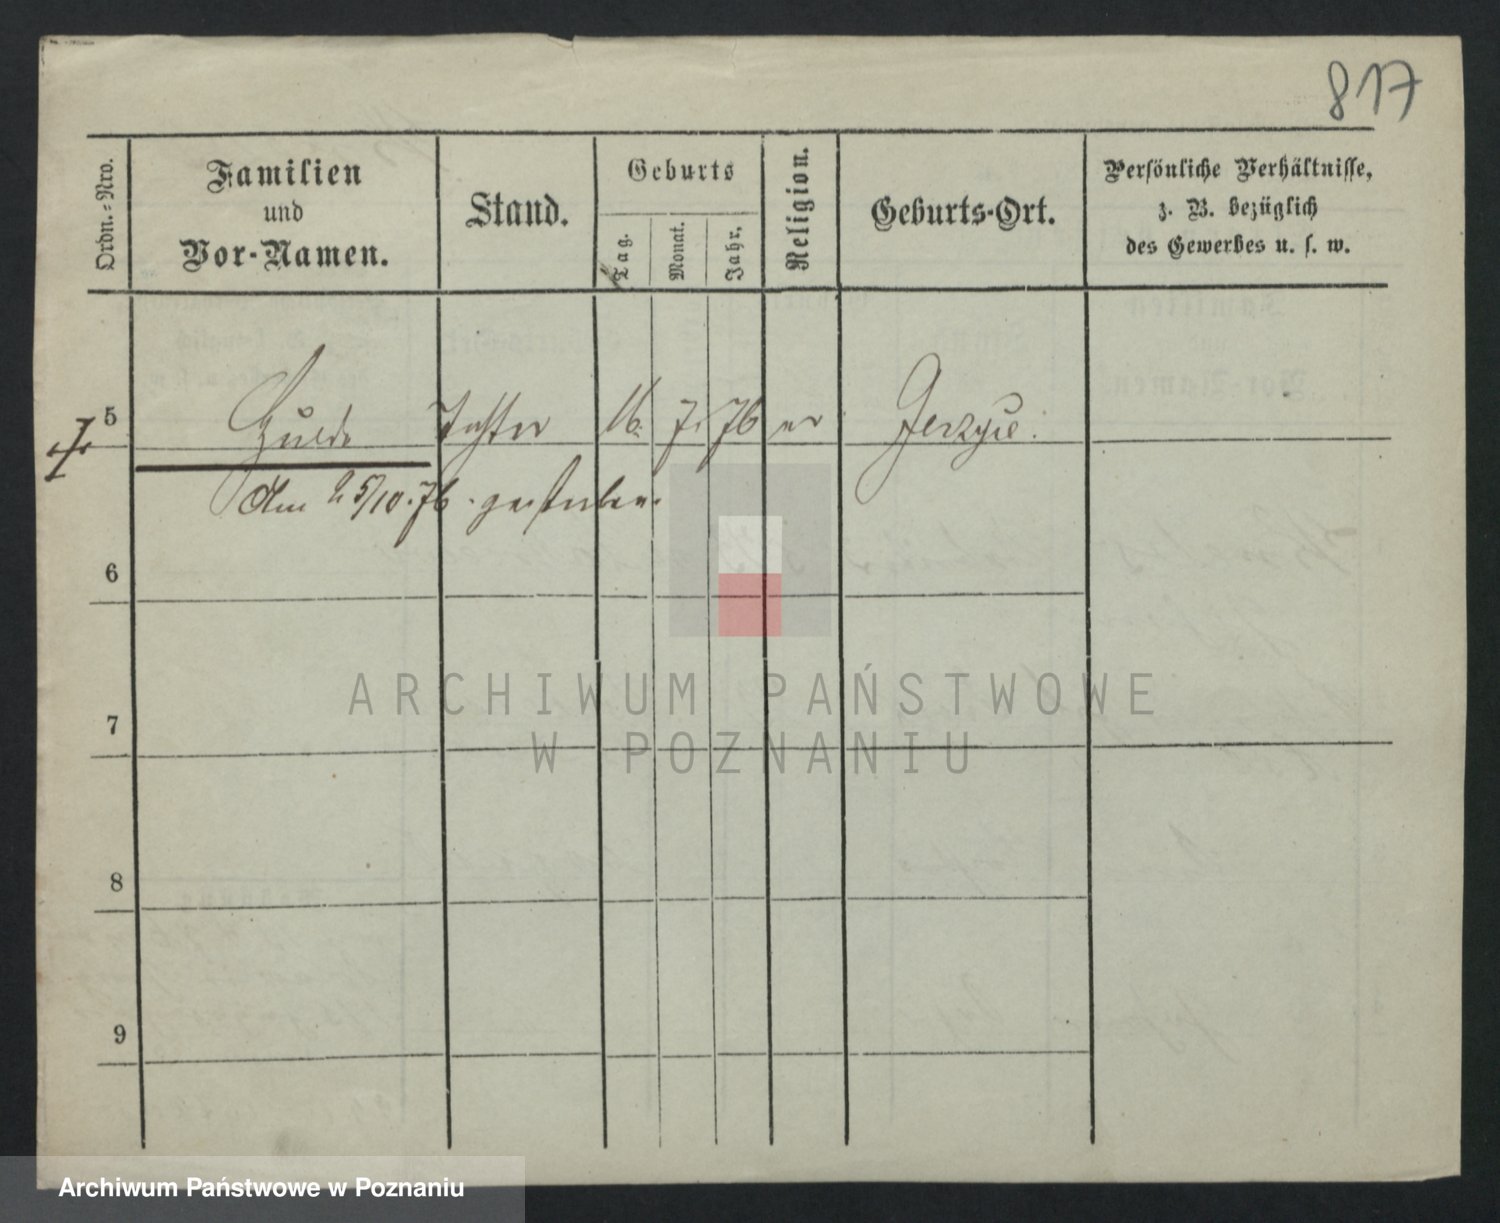 817
Ordn.-Nro.
Familien
und
Vor-Namen.
Stand.
Geburts
Tag.
Monat.
Jahr.
Religion.
Geburts-Ort.
Persönliche Verhältnisse,
z. B. bezüglich
des Gewerbes u. s. w.
5 Tochter 16. 7. 76 ev Jerzyce.
Am 25/10.76. gestorben.
6
7
8
9
ARCHIWUM PAŃSTWOWE
W POZNANIU
Archiwum Państwowe w Poznaniu